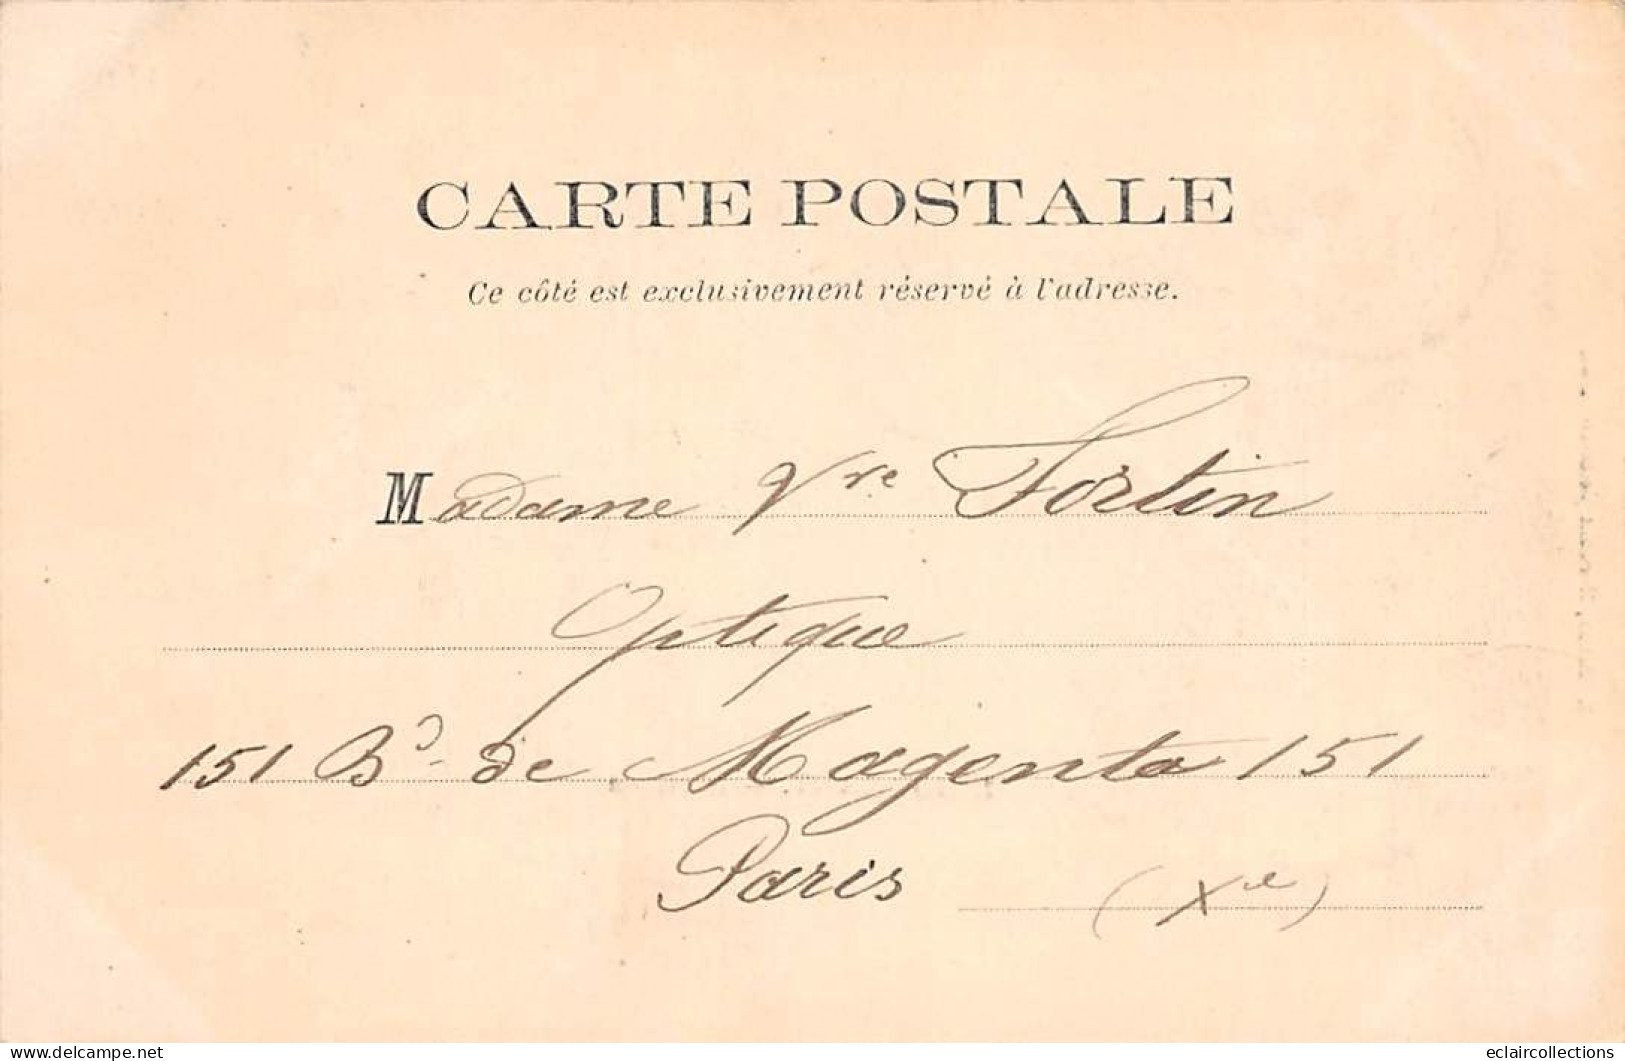 CARTE POSTALE
Ce côté est exclusivement réservé à l'adresse.
Madame Vve Fortin
Optique
151 Bd de Magenta 151
Paris (Xe)
www.delcampe.net
eclaircollections